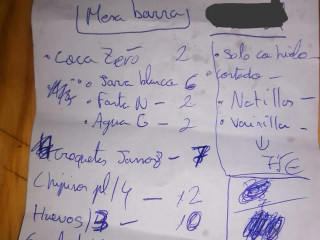 Mesa barra
• Coca Zero 2
• Jarra blanca 6
• Fanta N – 2
• Agua G – 2
Croquetas Jamon – 7
Chipiron pl/4 – 12
Huevos/3 – 10
• Solo con hielo –
• cortado –
• Natillas –
• Vainilla –
↓
7,5€